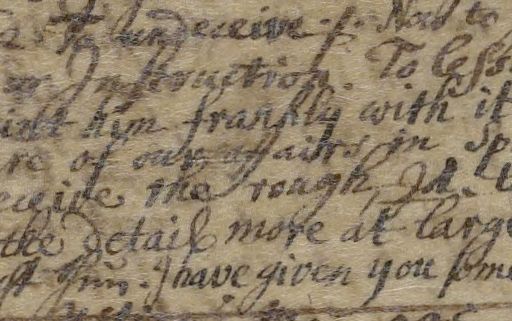 undeceive . Now to
Instruction. To less
him frankly with it
re of our affairs in
eceive the rough,
the detail more at large
him. I have given you some